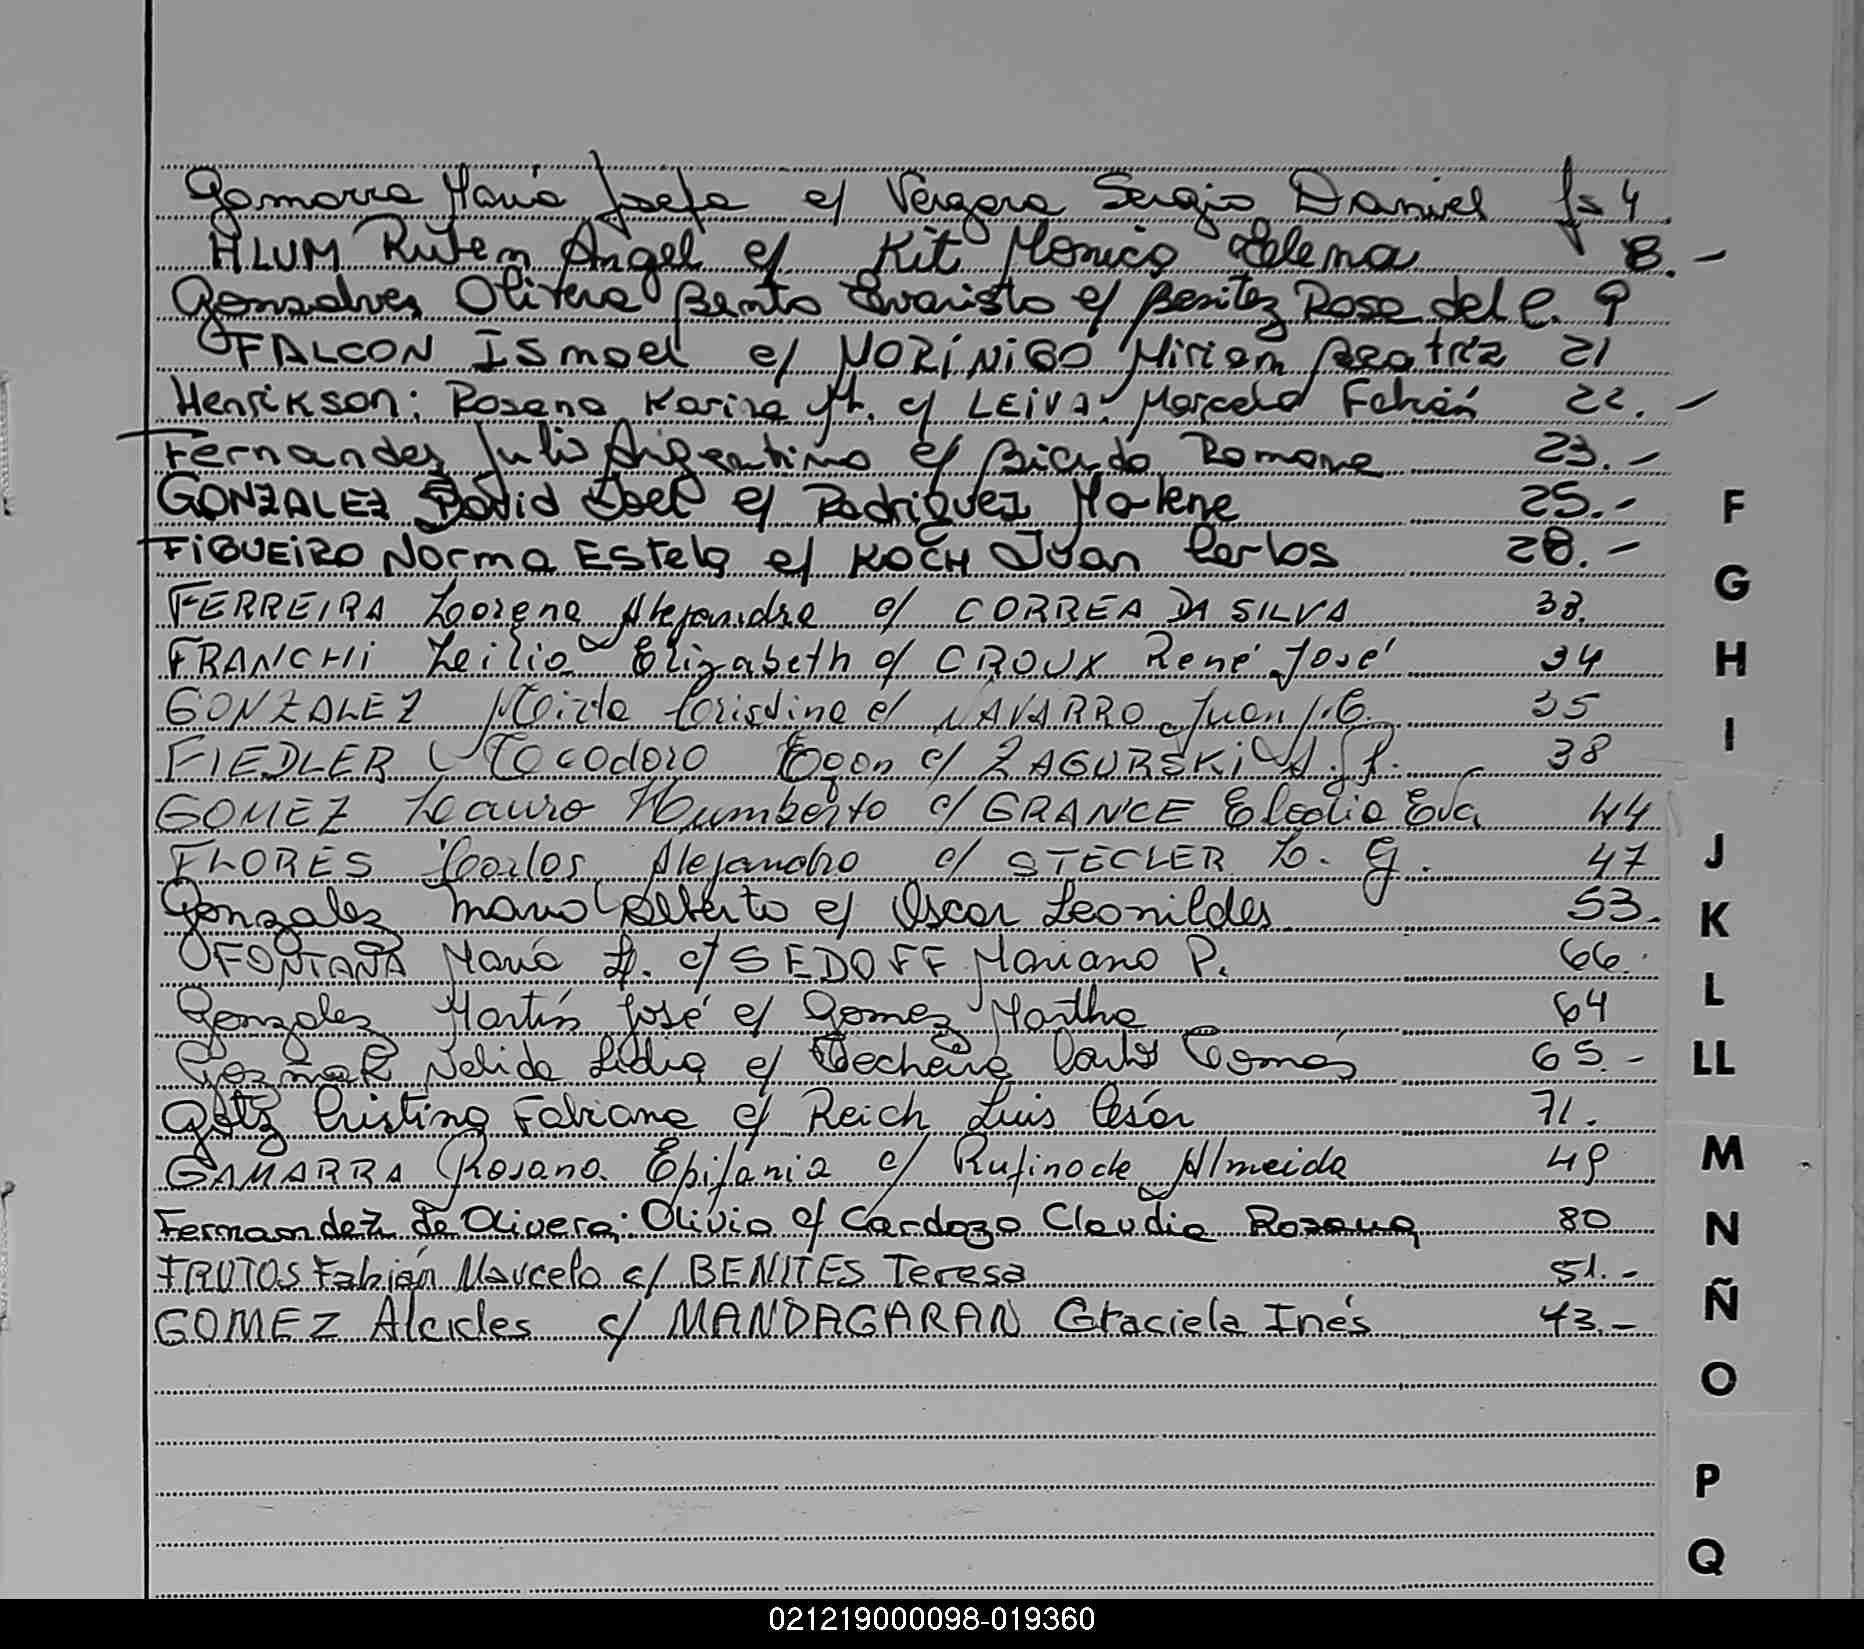 Gamarra María Josefa c/ Vergara Sergio Daniel fs 4
HLUM Ruben Angel c/ Kit Monica Elena 8.-
Gonsalves Olivera Bento Evaristo c/ Benitez Rosa del C. 9
FALCON Ismael c/ MORINIGO Miriam Beatriz 21
Henrikson: Rosana Karina c/ LEIVA: Marcelo Fabián 22.-
Fernandez Julio Argentino c/ Ramona 23.-
GONZALEZ David c/ Rodriguez Marlene 25.-
FIGUEIRO Norma Estela c/ KOCH Juan Carlos 28.-
FERREIRA Lorena Alejandra c/ CORREA DA SILVA 38.
FRANCHI Leilia Elizabeth c/ CROUX René José 34
GONZALEZ Mirta Cristina c/ NAVARRO Juan 35
FIEDLER Egon c/ ZAGURSKI 38
GOMEZ Lauro Humberto c/ GRANCE Elodia Eva 44
FLORES Carlos Alejandro c/ STECLER L. G. 47
Gonzalez Mario Alberto c/ Oscar Leonildes 53.
FONTANA María c/ SEDOFF Mariano P. 66.
Gonzalez Martín José c/ Gomez Martha 64
Nelida Lidia c/ Carlos Tomás 65.-
Gotz Cristina Fabiana c/ Reich Luis César 71.
GAMARRA Rosana Epifania c/ Rufino de Almeida 49
Fernandez de Olivera: Olivio c/ Cardozo Claudia Rosana 80
FRUTOS Fabián Marcelo c/ BENITES Teresa 51.-
GOMEZ Alcides c/ MANDAGARAN Graciela Inés 43.-
F
G
H
I
J
K
L
LL
M
N
Ñ
O
P
Q
021219000098-019360